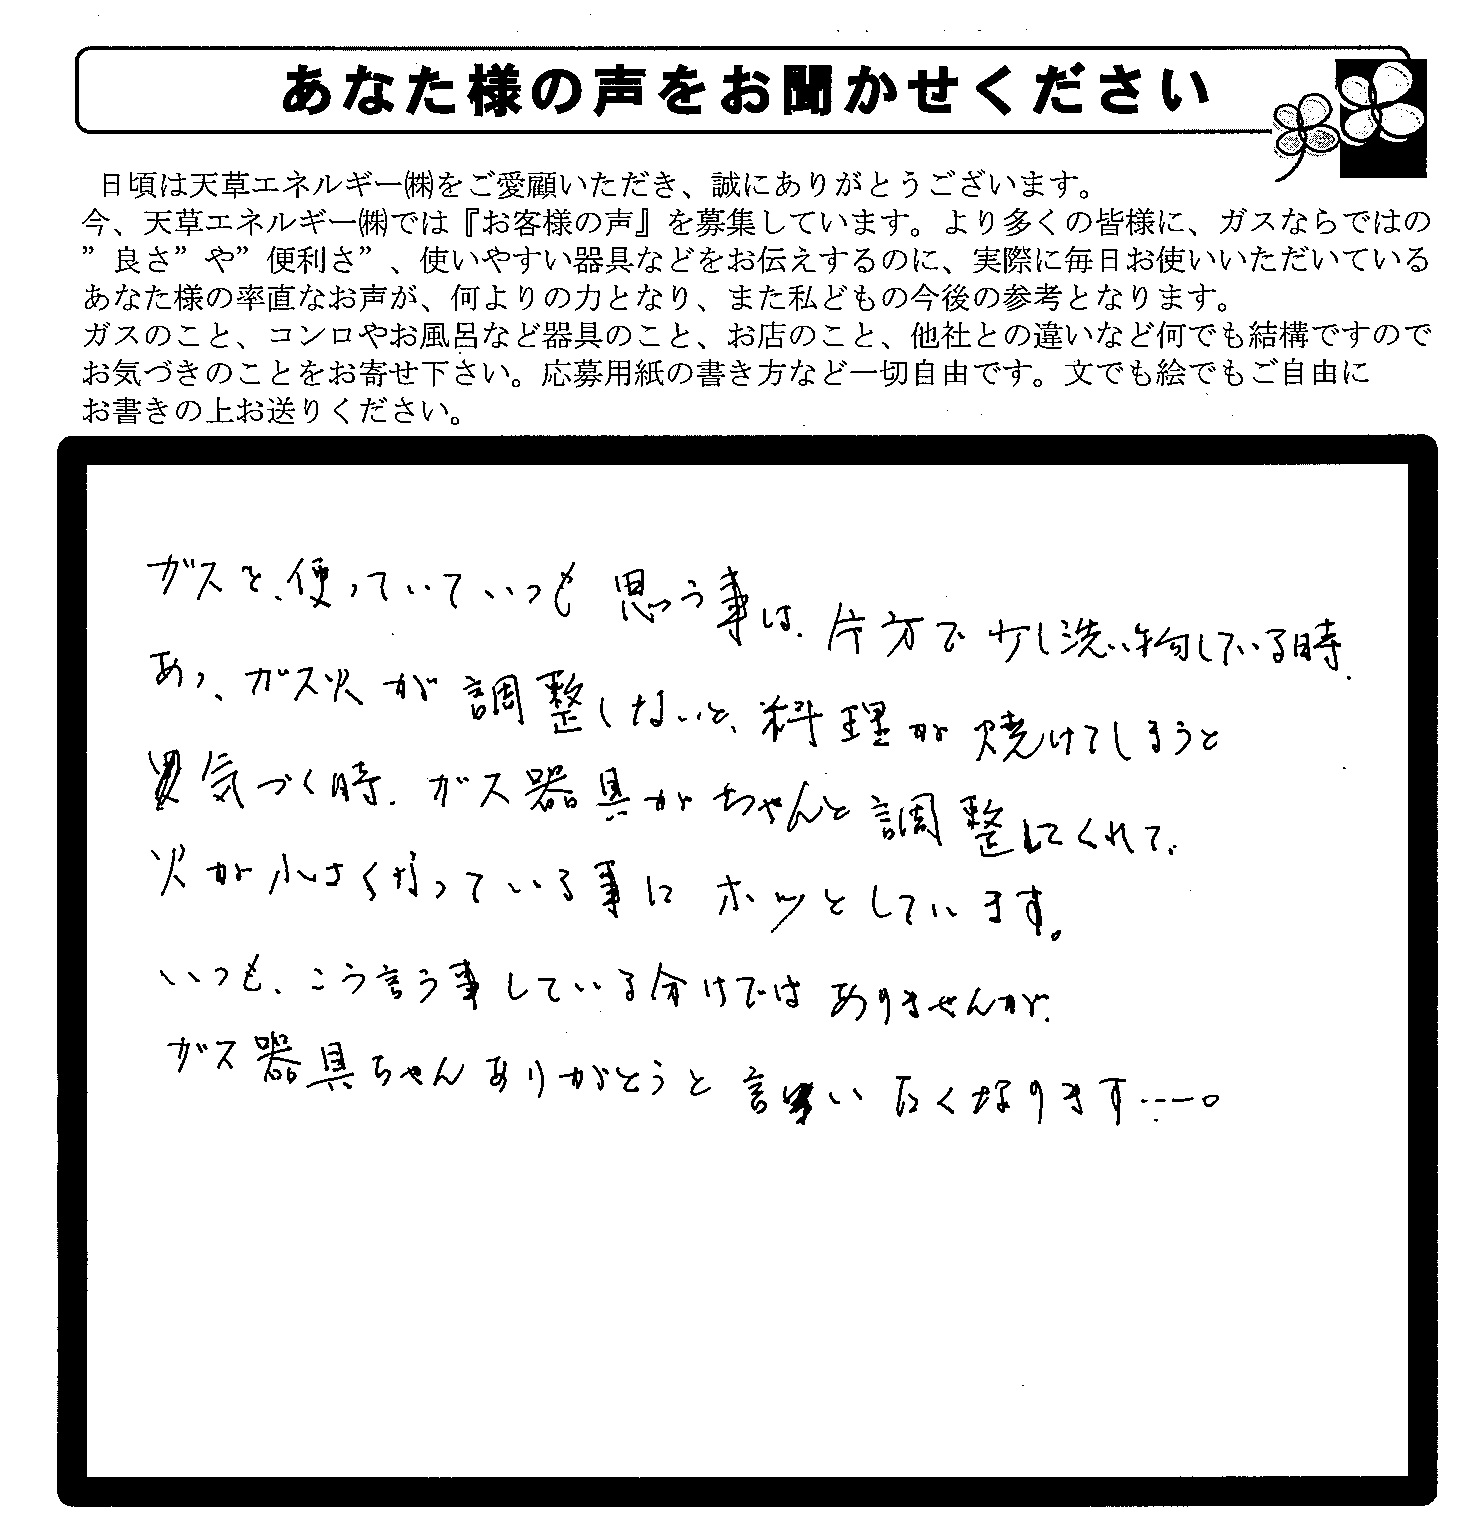 あなた様の声をお聞かせください
日頃は天草エネルギー㈱をご愛顧いただき、誠にありがとうございます。
今、天草エネルギー㈱では『お客様の声』を募集しています。より多くの皆様に、ガスならではの
”良さ”や”便利さ”、使いやすい器具などをお伝えするのに、実際に毎日お使いいただいている
あなた様の率直なお声が、何よりの力となり、また私どもの今後の参考となります。
ガスのこと、コンロやお風呂など器具のこと、お店のこと、他社との違いなど何でも結構ですので
お気づきのことをお寄せ下さい。応募用紙の書き方など一切自由です。文でも絵でもご自由に
お書きの上お送りください。
ガスを、使っていていつも思う事は、片方で少し洗い物している時、
あっ、ガス火が調整しないと、料理が焼けてしまうと
気づく時、ガス器具がちゃんと調整してくれて、
火が小さくなっている事にホッとしています。
いつも、こう言う事している分けではありませんが、
ガス器具ちゃんありがとうと言いたくなります……。